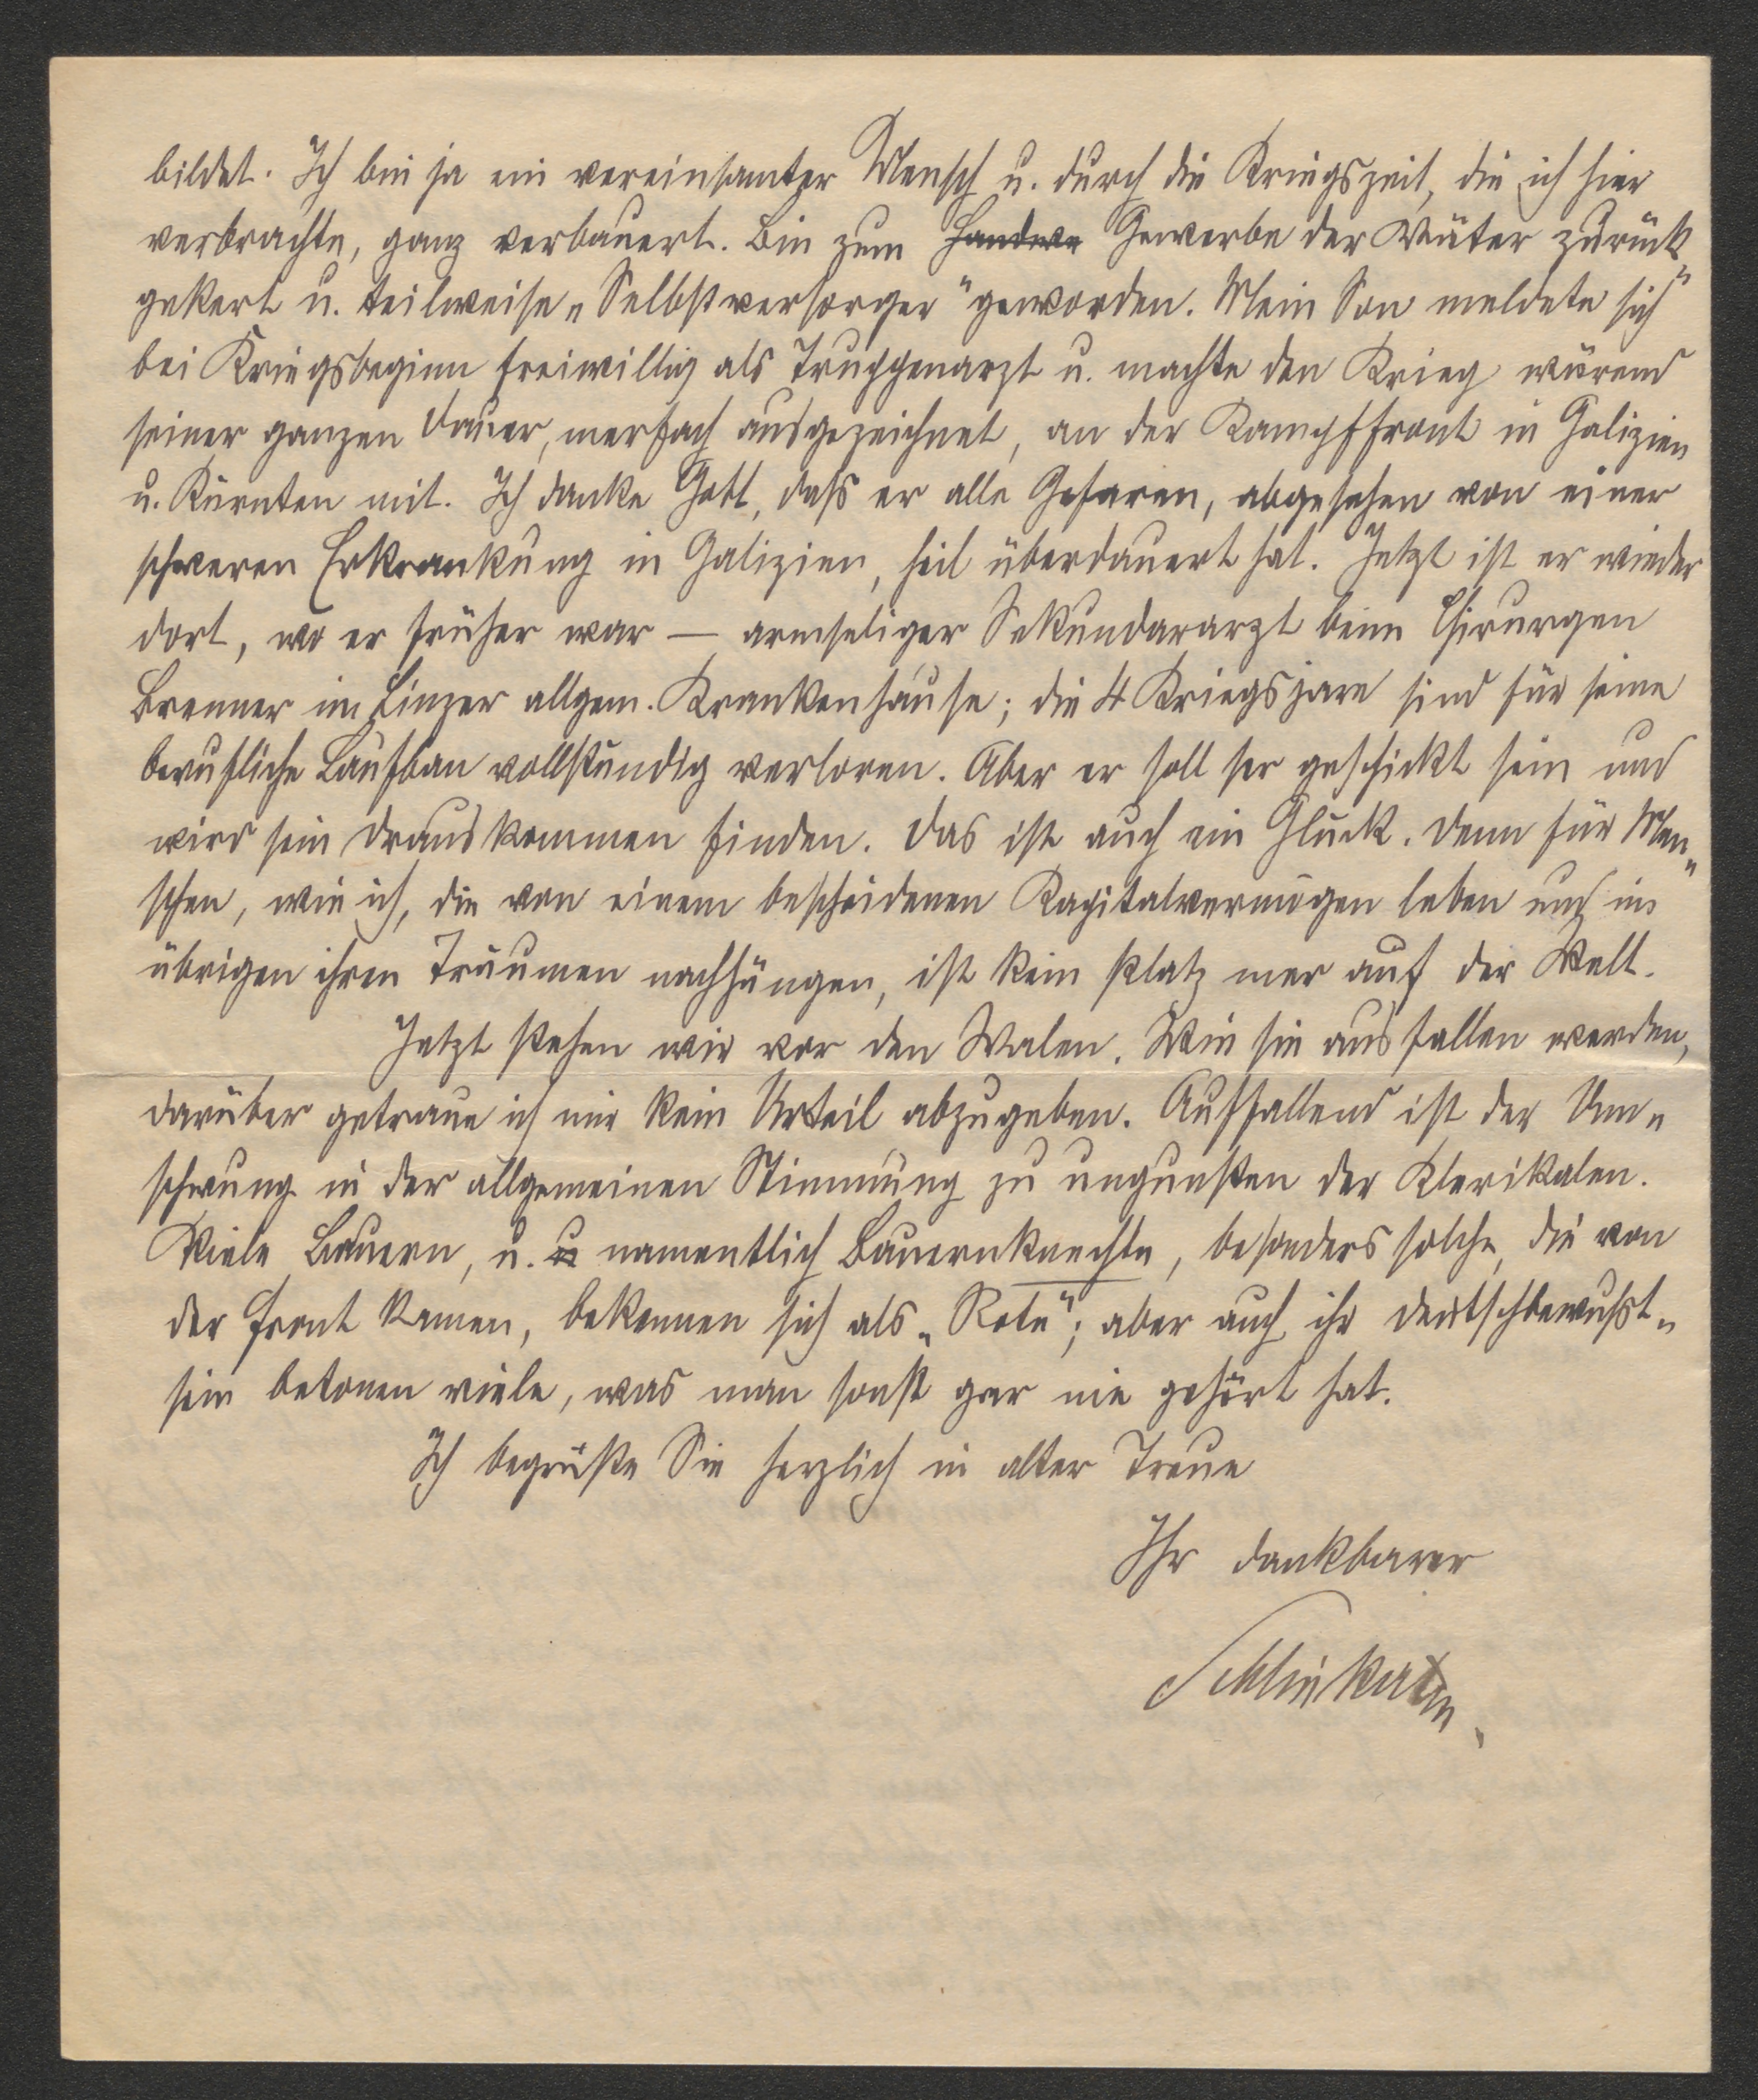 bildet. Ich bin ja ein vereinsamter Mensch u. durch die Kriegszeit, die ich hier
verbrachte, ganz verbauert. Bin zum Handwe Gewerbe der Väter zurück„
gekert u. teilweise „Selbstversorger“ geworden. Mein Son meldete sich
bei Kriegsbeginn freiwillig als Truppenarzt u. machte den Krieg wärend
seiner ganzen Dauer, merfach ausgezeichnet, an der Kampffront in Galizien
u. Kärnten mit. Ich danke Gott, daß er alle Gefaren, abgesehen von einer
schweren Erkrankung in Galizien, heil überdauert hat. Jetzt ist er wieder
dort, wo er früher war — armseliger Sekundararzt beim Chirurgen
Brenner im Linzer allgem. Krankenhause; die 4 Kriegsjare sind für seine
berufliche Laufban vollständig verloren. Aber er soll ser geschickt sein und
wird sein Drauskommen finden. Das ist auch ein Glück. Denn für Men„
schen, wie ich, die von einem bescheidenen Kapitalvermögen leben und im
übrigen ihren Träumen nachhängen, ist kein Platz mer auf der Welt.
Jetzt stehen wir vor den Walen. Wie sie ausfallen werden,
darüber getraue ich mir kein Urteil abzugeben. Auffallend ist der Um„
schwung in der allgemeinen Stimmung zu ungunsten der Klerikalen.
Viele Bauern, u. u namentlich Bauernknechte, besonders solche, die von
der Front kamen, bekennen sich als „Rote“; aber auch ihr Deutschbewußt„
sein betonen viele, was man sonst gar nie gehört hat.
Ich begrüße Sie herzlich in alter Treue
Ihr dankbarer